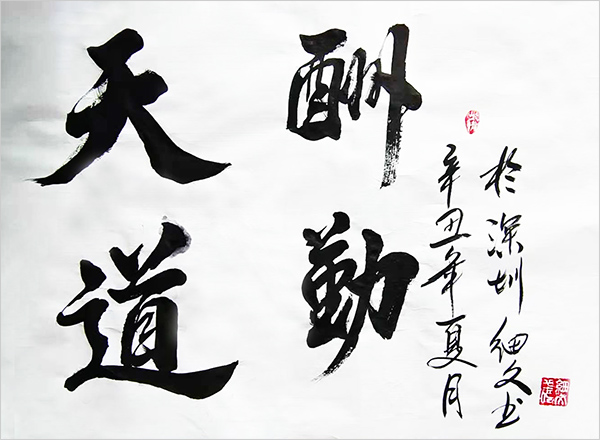 天道
酬勤
辛丑年夏月
於深圳細文书